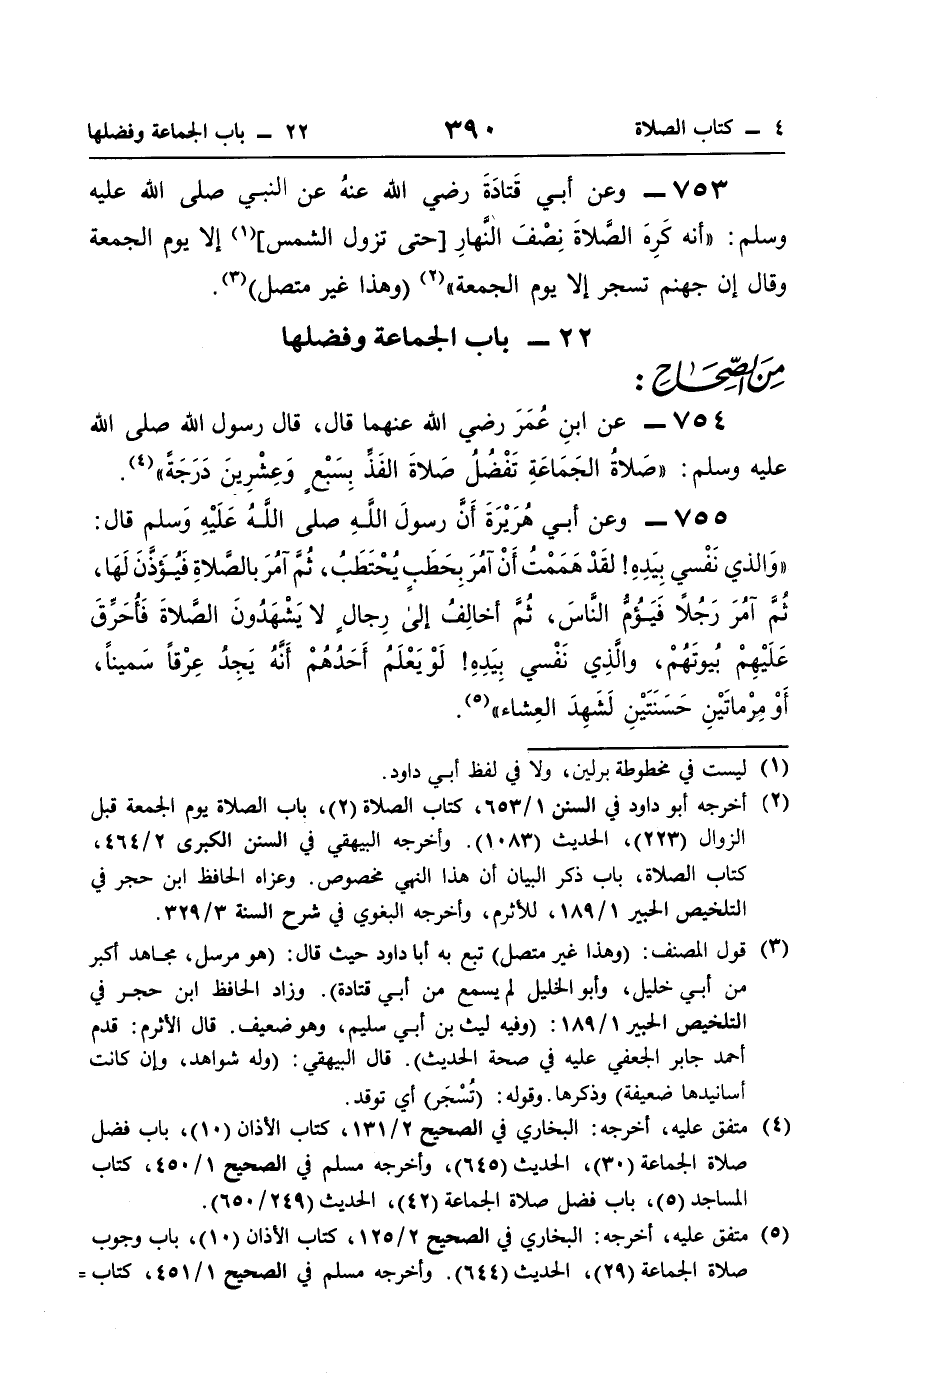 ٤ ــ كتاب الصلاة ٣٩٠ ٢٢ ــ باب الجماعة وفضلها
٧٥٣ ــ وعن أبي قَتادَةَ رضي الله عنهُ عن النبي صلى الله عليه
وسلم: «أنه كَرِهَ الصَّلاةَ نِصْفَ النَّهارِ [حتى تزول الشمس](١) إلا يوم الجمعة
وقال إن جهنم تسجر إلا يوم الجمعة»(٢) (وهذا غير متصل)(٣).
٢٢ ــ باب الجماعة وفضلها
مِنَ الصِّحَاحِ :
٧٥٤ ــ عن ابنِ عُمَرَ رضي الله عنهما قال، قال رسول الله صلى الله
عليه وسلم: «صَلاةُ الجَمَاعَةِ تَفْضُلُ صَلاةَ الفَذِّ بِسَبْعٍ وَعِشْرِينَ دَرَجَةً»(٤).
٧٥٥ ــ وعن أبي هُرَيْرَةَ أَنَّ رسولَ اللَّهِ صلى اللَّهُ عَلَيْهِ وَسلم قال:
«وَالذي نَفْسي بِيَدِهِ! لقَدْ هَمَمْتُ أَنْ آمُرَ بِحَطَبٍ يُحْتَطَبُ، ثُمَّ آمُرَ بالصَّلاةِ فَيُؤَذَّنَ لَهَا،
ثُمَّ آمُرَ رَجُلاً فَيَؤُمُّ النَّاسَ، ثُمَّ أخالِفُ إلىٰ رِجالٍ لا يَشْهَدُونَ الصَّلاةَ فَأُحَرِّقَ
عَلَيْهِمْ بُيوتَهُمْ، والَّذِي نَفْسي بِيَدِهِ! لَوْ يَعْلَمُ أَحَدُهُمْ أَنَّهُ يَجِدُ عِرْقاً سَميناً،
أَوْ مِرْماتَيْنِ حَسَنَتَيْنِ لَشَهِدَ العِشاء»(٥).
(١) ليست في مخطوطة برلين، ولا في لفظ أبي داود.
(٢) أخرجه أبو داود في السنن ٦٥٣/١، كتاب الصلاة (٢)، باب الصلاة يوم الجمعة قبل
الزوال (٢٢٣)، الحديث (١٠٨٣). وأخرجه البيهقي في السنن الكبرى ٤٦٤/٢،
كتاب الصلاة، باب ذكر البيان أن هذا النهي مخصوص. وعزاه الحافظ ابن حجر في
التلخيص الحبير ١٨٩/١، للأثرم، وأخرجه البغوي في شرح السنة ٣٢٩/٣.
(٣) قول المصنف: (وهذا غير متصل) تبع به أبا داود حيث قال: (هو مرسل، مجاهد أكبر
من أبي خليل، وأبو الخليل لم يسمع من أبي قتادة). وزاد الحافظ ابن حجر في
التلخيص الحبير ١٨٩/١: (وفيه ليث بن أبي سليم، وهو ضعيف. قال الأثرم: قدم
أحمد جابر الجعفي عليه في صحة الحديث). قال البيهقي: (وله شواهد، وإن كانت
أسانيدها ضعيفة) وذكرها. وقوله: (تُسْجَر) أي توقد.
(٤) متفق عليه، أخرجه: البخاري في الصحيح ١٣١/٢، كتاب الأذان (١٠)، باب فضل
صلاة الجماعة (٣٠)، الحديث (٦٤٥)، وأخرجه مسلم في الصحيح ٤٥٠/١، كتاب
المساجد (٥)، باب فضل صلاة الجماعة (٤٢)، الحديث (٦٥٠/٢٤٩).
(٥) متفق عليه، أخرجه: البخاري في الصحيح ١٢٥/٢، كتاب الأذان (١٠)، باب وجوب
صلاة الجماعة (٢٩)، الحديث (٦٤٤). وأخرجه مسلم في الصحيح ٤٥١/١، كتاب =